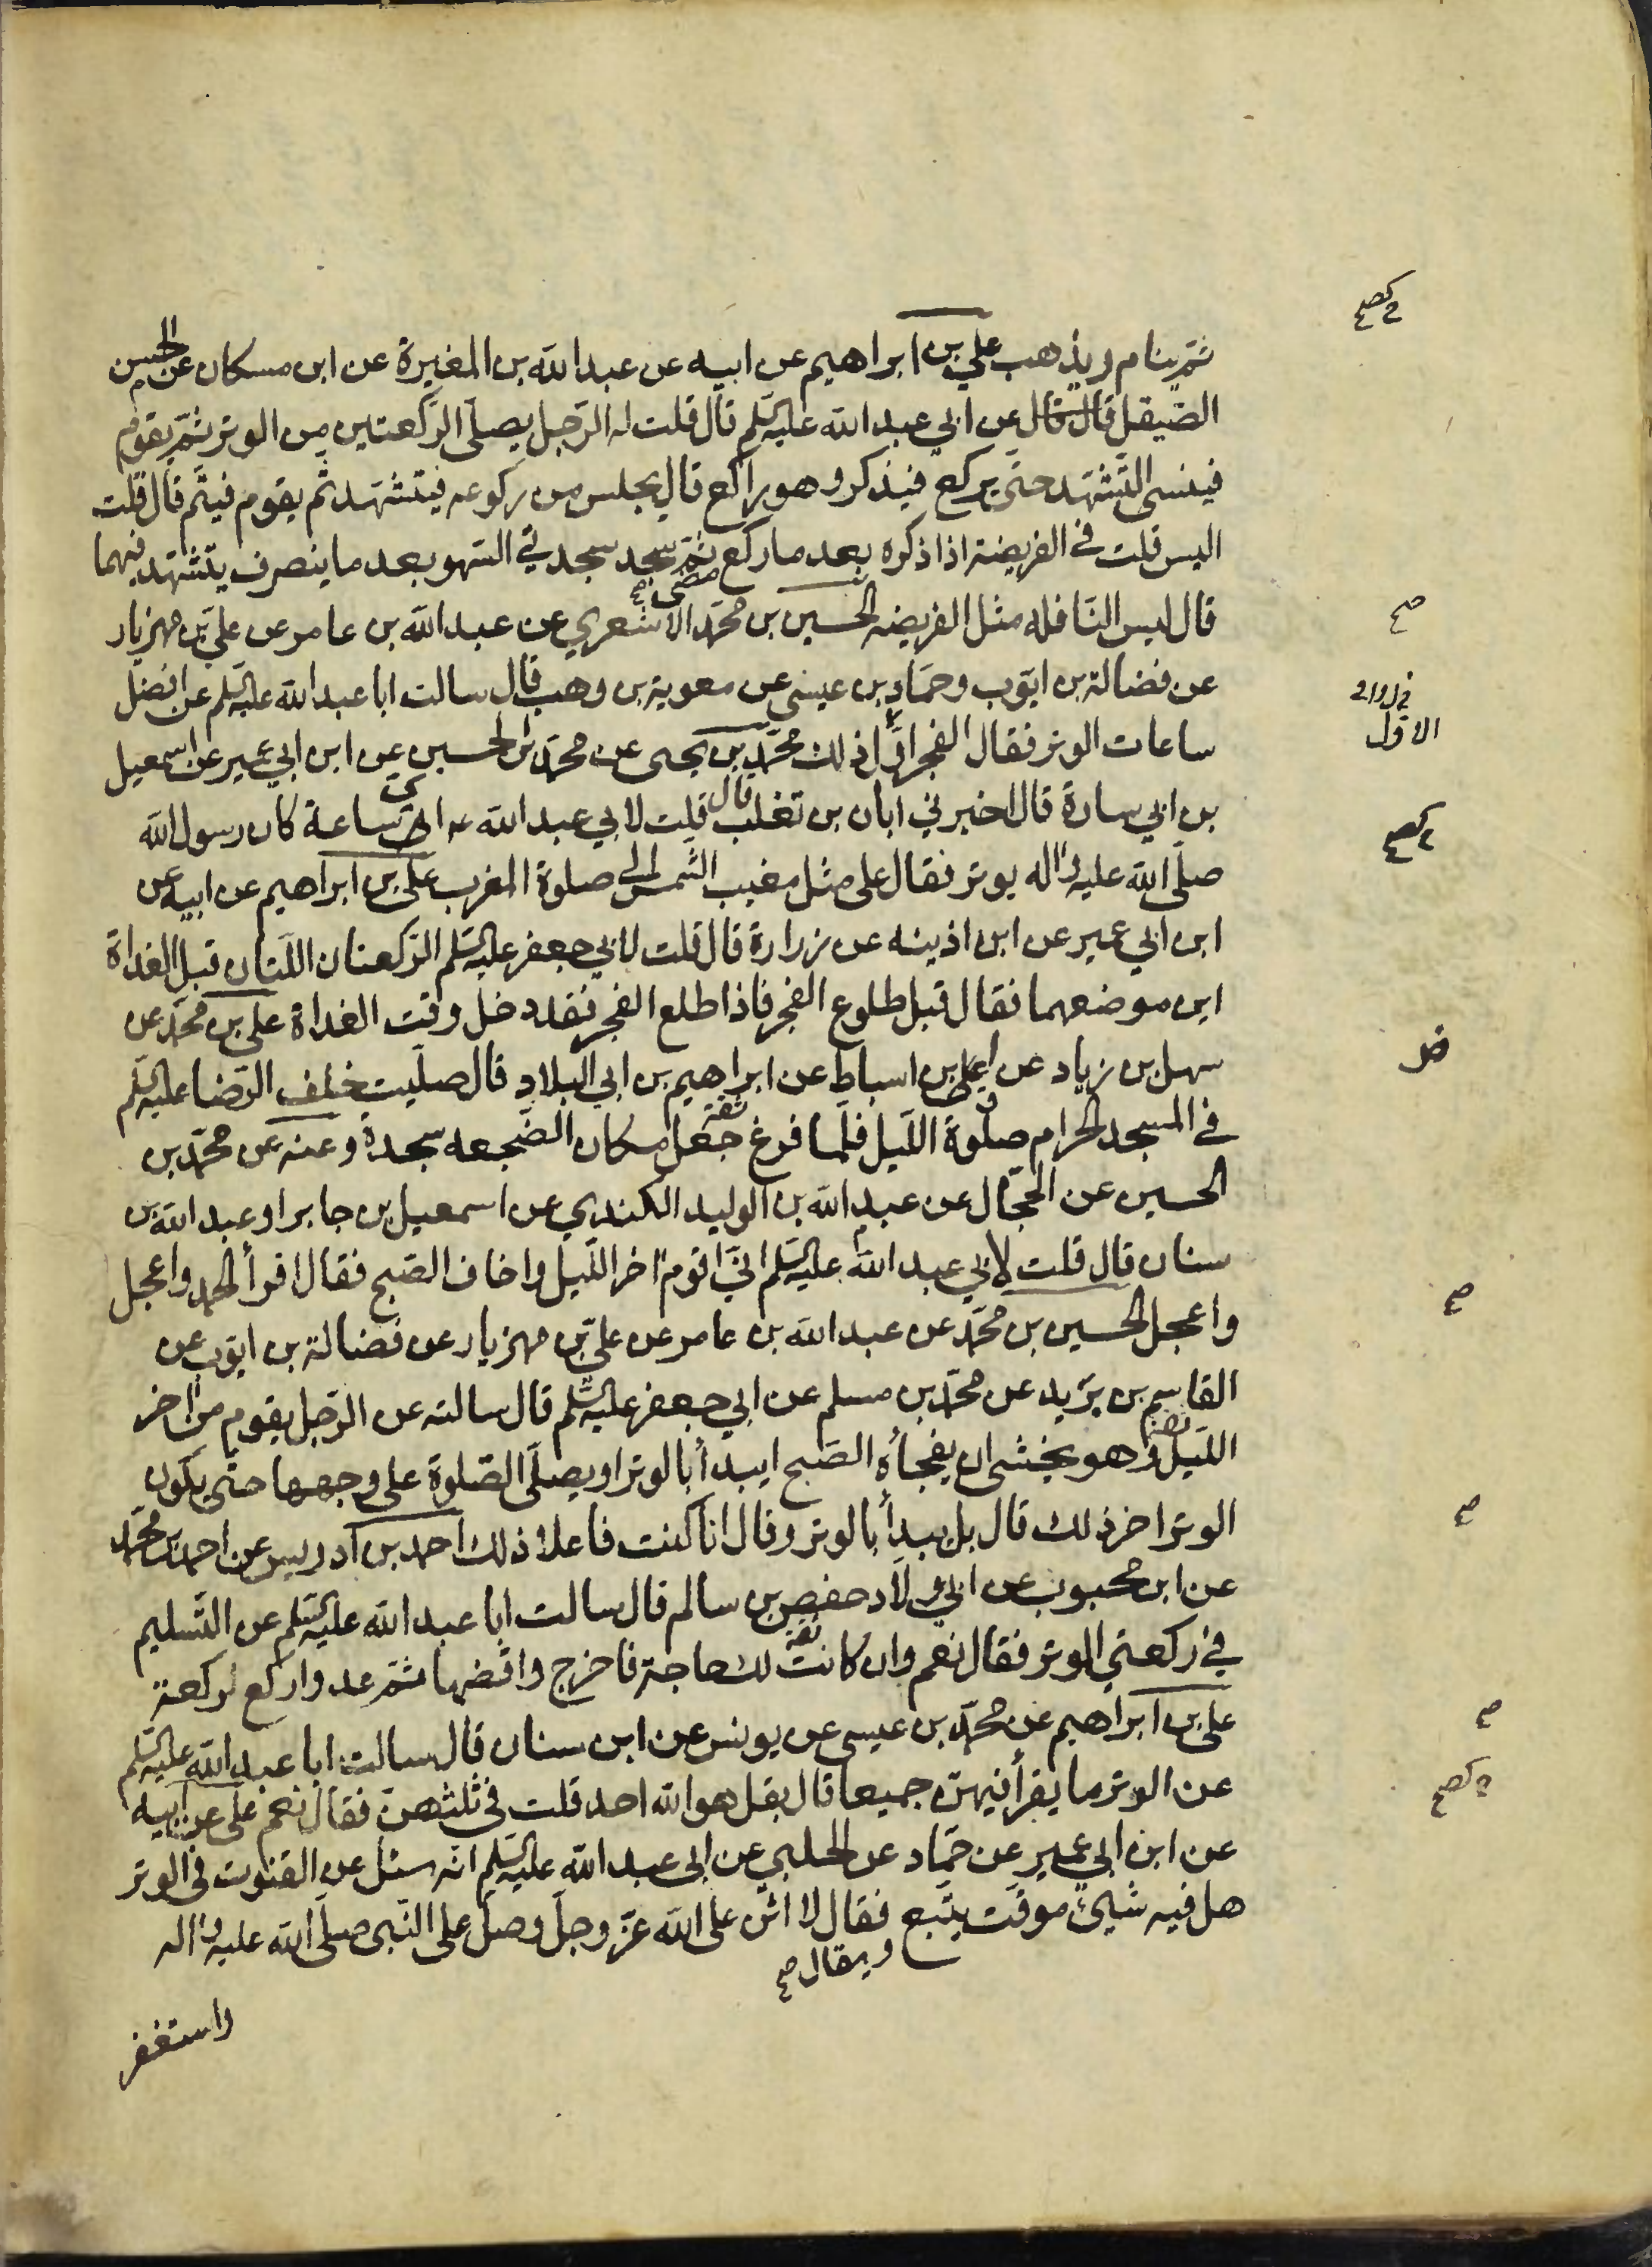 ثم ينام ويذهب علي بن ابراهيم عن ابيه عن عبد الله بن المغيرة عن ابن مسكان عن الحسن
الصّيقل عن ابي عبد الله عليه السّلم قال قلت له الرّجل يصلّى الرّكعتين من الوتر ثمّ يقوم
فينسى التّشهّد حتّى يركع فيذكر وهو راكع قال يجلس من ركوعه فيتشهّد ثم يقوم فيتمّ قال قلت
اليس قلت في الفريضة اذا ذكره بعد ما ركع مضى ثمّ سجد سجدتي السّهو بعد ما ينصرف يتشهّد فيهما
قال ليس النّافله مثل الفريضه الحسين بن محمّد الاشعري عن عبد الله بن عامر عن عليّ بن مهزيار
عن فضالة بن ايّوب وحمّاد بن عيسى عن معوية بن وهب قال سالت ابا عبد الله عليه السّلم عن افضل
ساعات الوتر فقال الفجر اوّل ذلك محمّد بن يحيى عن محمّد بن الحسين عن ابن ابي عمير عن اسمعيل
بن ابي سارة قال اخبرني ابان بن تغلب قال قلت لابي عبد الله عه ايّ ساعة كان رسول الله
صلّى الله عليه واله يوتر فقال على مثل مغيب الشّمس الى صلوة المغرب علي بن ابراهيم عن ابيه عن
ابن ابي عمير عن ابن اذينه عن زرارة قال قلت لابي جعفر عليه السّلم الرّكعتان اللّتان قبل الغداة
اين موضعهما فقال قبل طلوع الفجر فاذا طلع الفجر فقد دخل وقت الغداة علي بن محمّد عن
سهل بن زياد عن علي بن اسباط عن ابراهيم بن ابي البلاد قال صلّيت خلف الرّضا عليه السّلم
في المسجد الحرام صلوة اللّيل فلمّا فرغ جعل مكان الضّجعه سجدة وعنه عن محمّد بن
الحسين عن الحجّال عن عبد الله بن الوليد الكندي عن اسمعيل بن جابر او عبد الله بن
سنان قال قلت لابي عبد الله عليه السّلم انّي اقوم اخر اللّيل واخاف الصّبح فقال اقرأ الحمد واعجل
واعجل الحسين بن محمّد عن عبد الله بن عامر عن عليّ بن مهزيار عن فضالة بن ايّوب عن
القاسم بن يزيد عن محمّد بن مسلم عن ابي جعفر عليه السّلم قال سالته عن الرّجل يقوم من اخر
اللّيل وهو يخشى ان يفجأه الصّبح ايبدأ بالوتر او يصلّى الصّلوة على وجهها حتّى يكون
الوتر اخر ذلك قال بل يبدأ بالوتر وقال انا كنت فاعلا ذلك احمد بن ادريس عن احمد بن محمّد
عن ابن محبوب عن ابي ولّاد حفص بن سالم قال سالت ابا عبد الله عليه السّلم عن التّسليم
في ركعتي الوتر فقال نعم وان كانت لك حاجة فاخرج واقضها ثمّ عد واركع ركعة
علي بن ابراهيم عن محمّد بن عيسى عن يونس عن ابن سنان قال سالت ابا عبد الله عليه السّلم
عن الوتر ما يقرأ فيهنّ جميعا قال بقل هو الله احد قلت في ثلثهنّ فقال نعم علي عن ابيه
عن ابن ابي عمير عن حمّاد عن الحلبي عن ابي عبد الله عليه السّلم انّه سئل عن القنوت في الوتر
هل فيه شيئ موقّت يتّبع ويقال فقال لا اثن على الله عزّ وجلّ وصلّ على النّبي صلّى الله عليه واله
واستغفر
صح
الاول